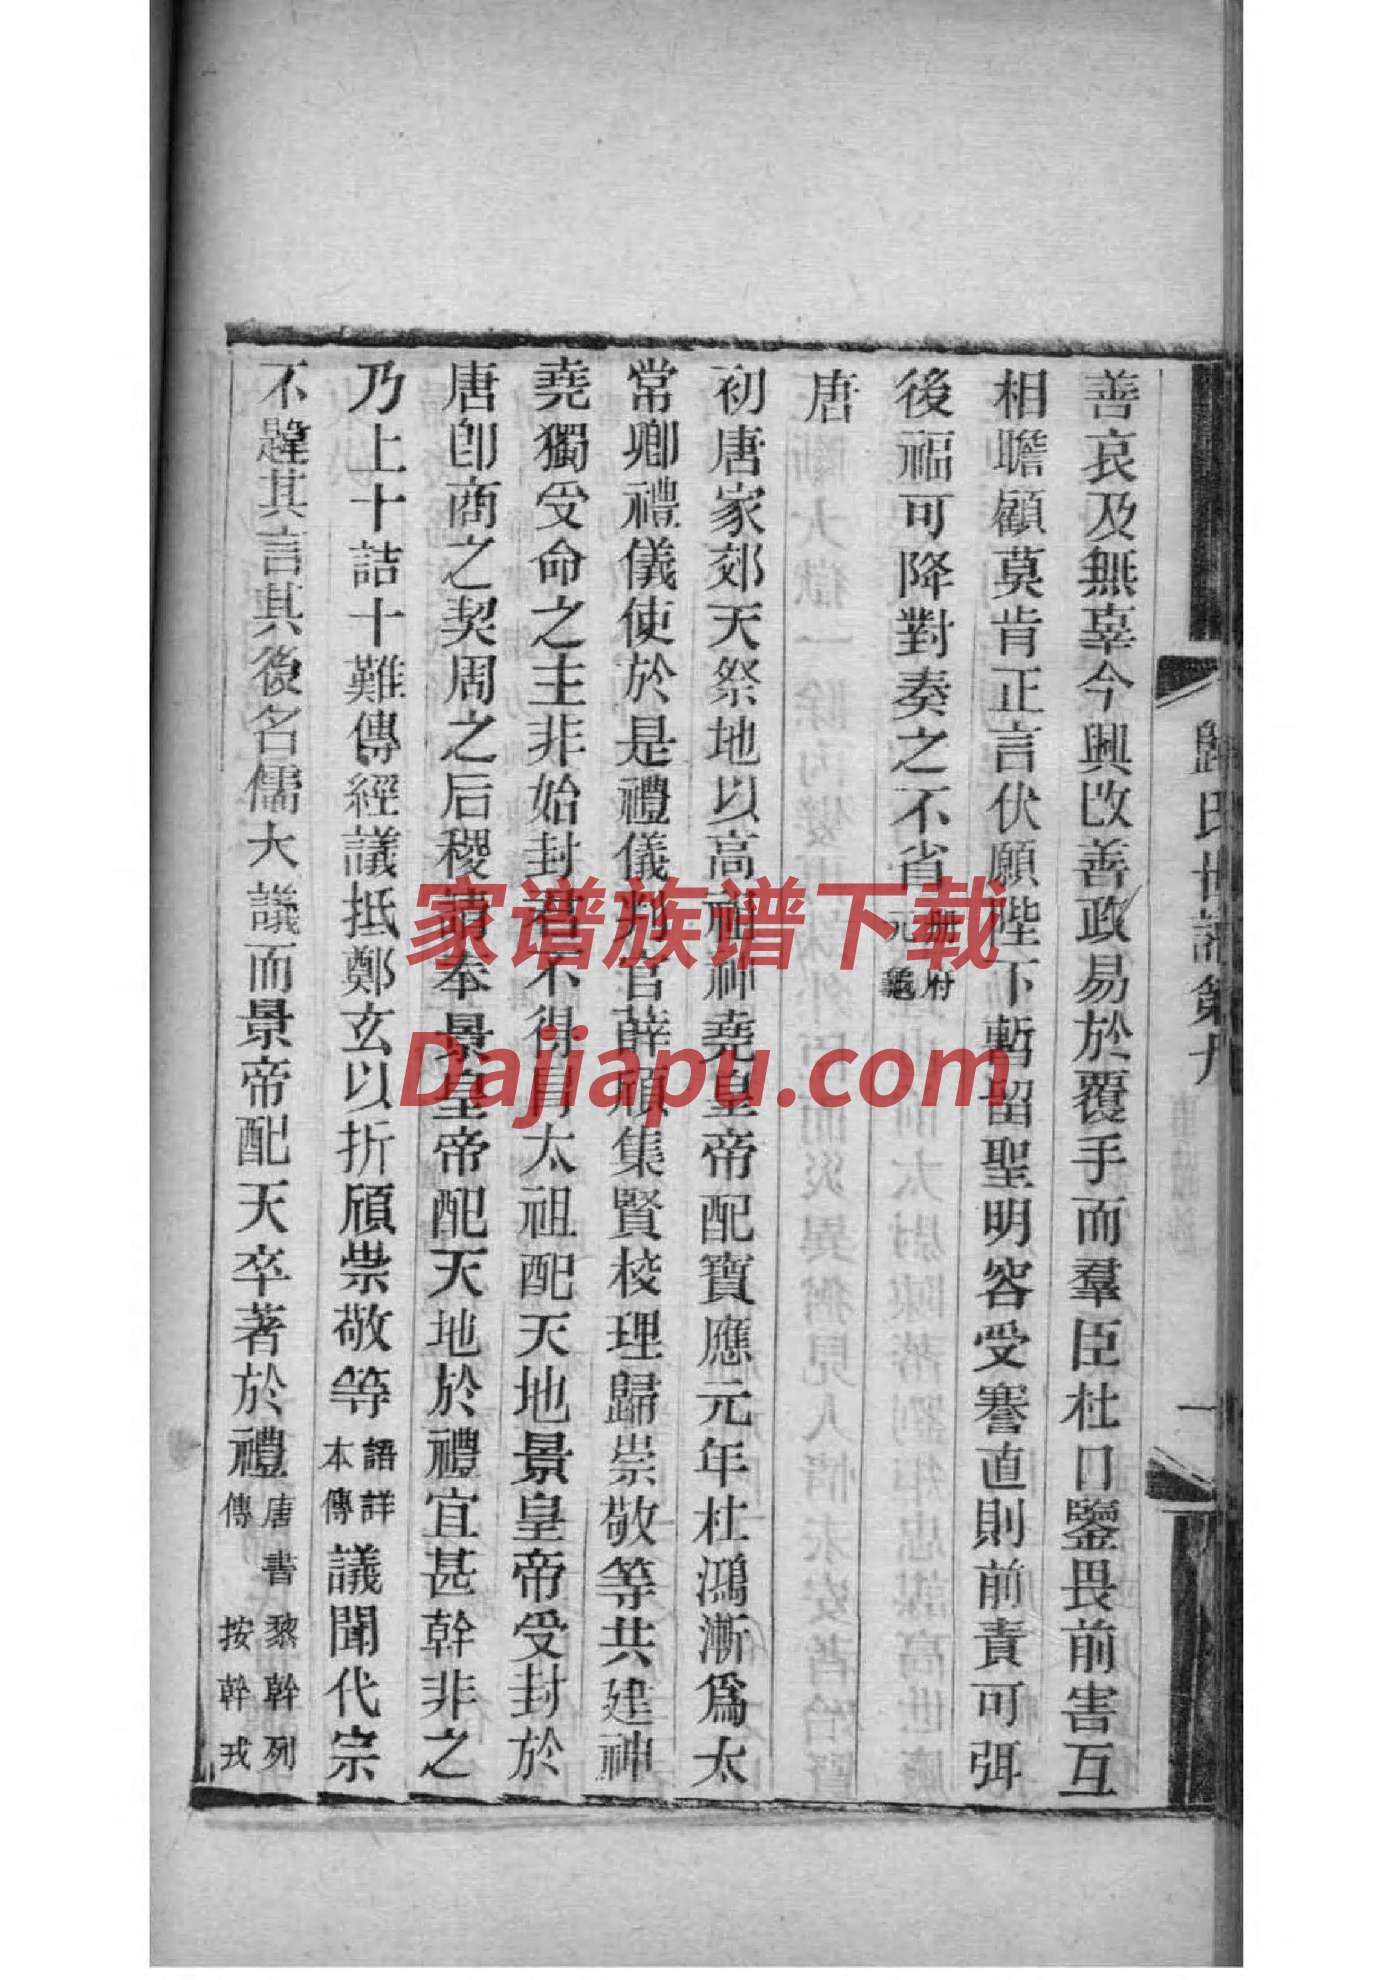 歸氏世譜第九
一
善哀及無辜今興改善政易於覆手而羣臣杜口鑒畏前害互
相瞻顧莫肯正言伏願陛下暫留聖明容受謇直則前責可弭
後福可降對奏之不省 冊府元龜
唐
初唐家郊天祭地以高祖神堯皇帝配寶應元年杜鴻漸為太
常卿禮儀使於是禮儀判官薛頎集賢校理歸崇敬等共建神
堯獨受命之主非始封君不得冒太祖配天地景皇帝受封於
唐卽商之契周之后稷請奉景皇帝配天地於禮宜甚幹非之
乃上十詰十難傳經議抵鄭玄以折頎崇敬等 語詳本傳 議聞代宗
不韙其言其後名儒大議而景帝配天卒著於禮 唐書黎幹列傳 按幹戎
家谱族谱下载
Dajiapu.com